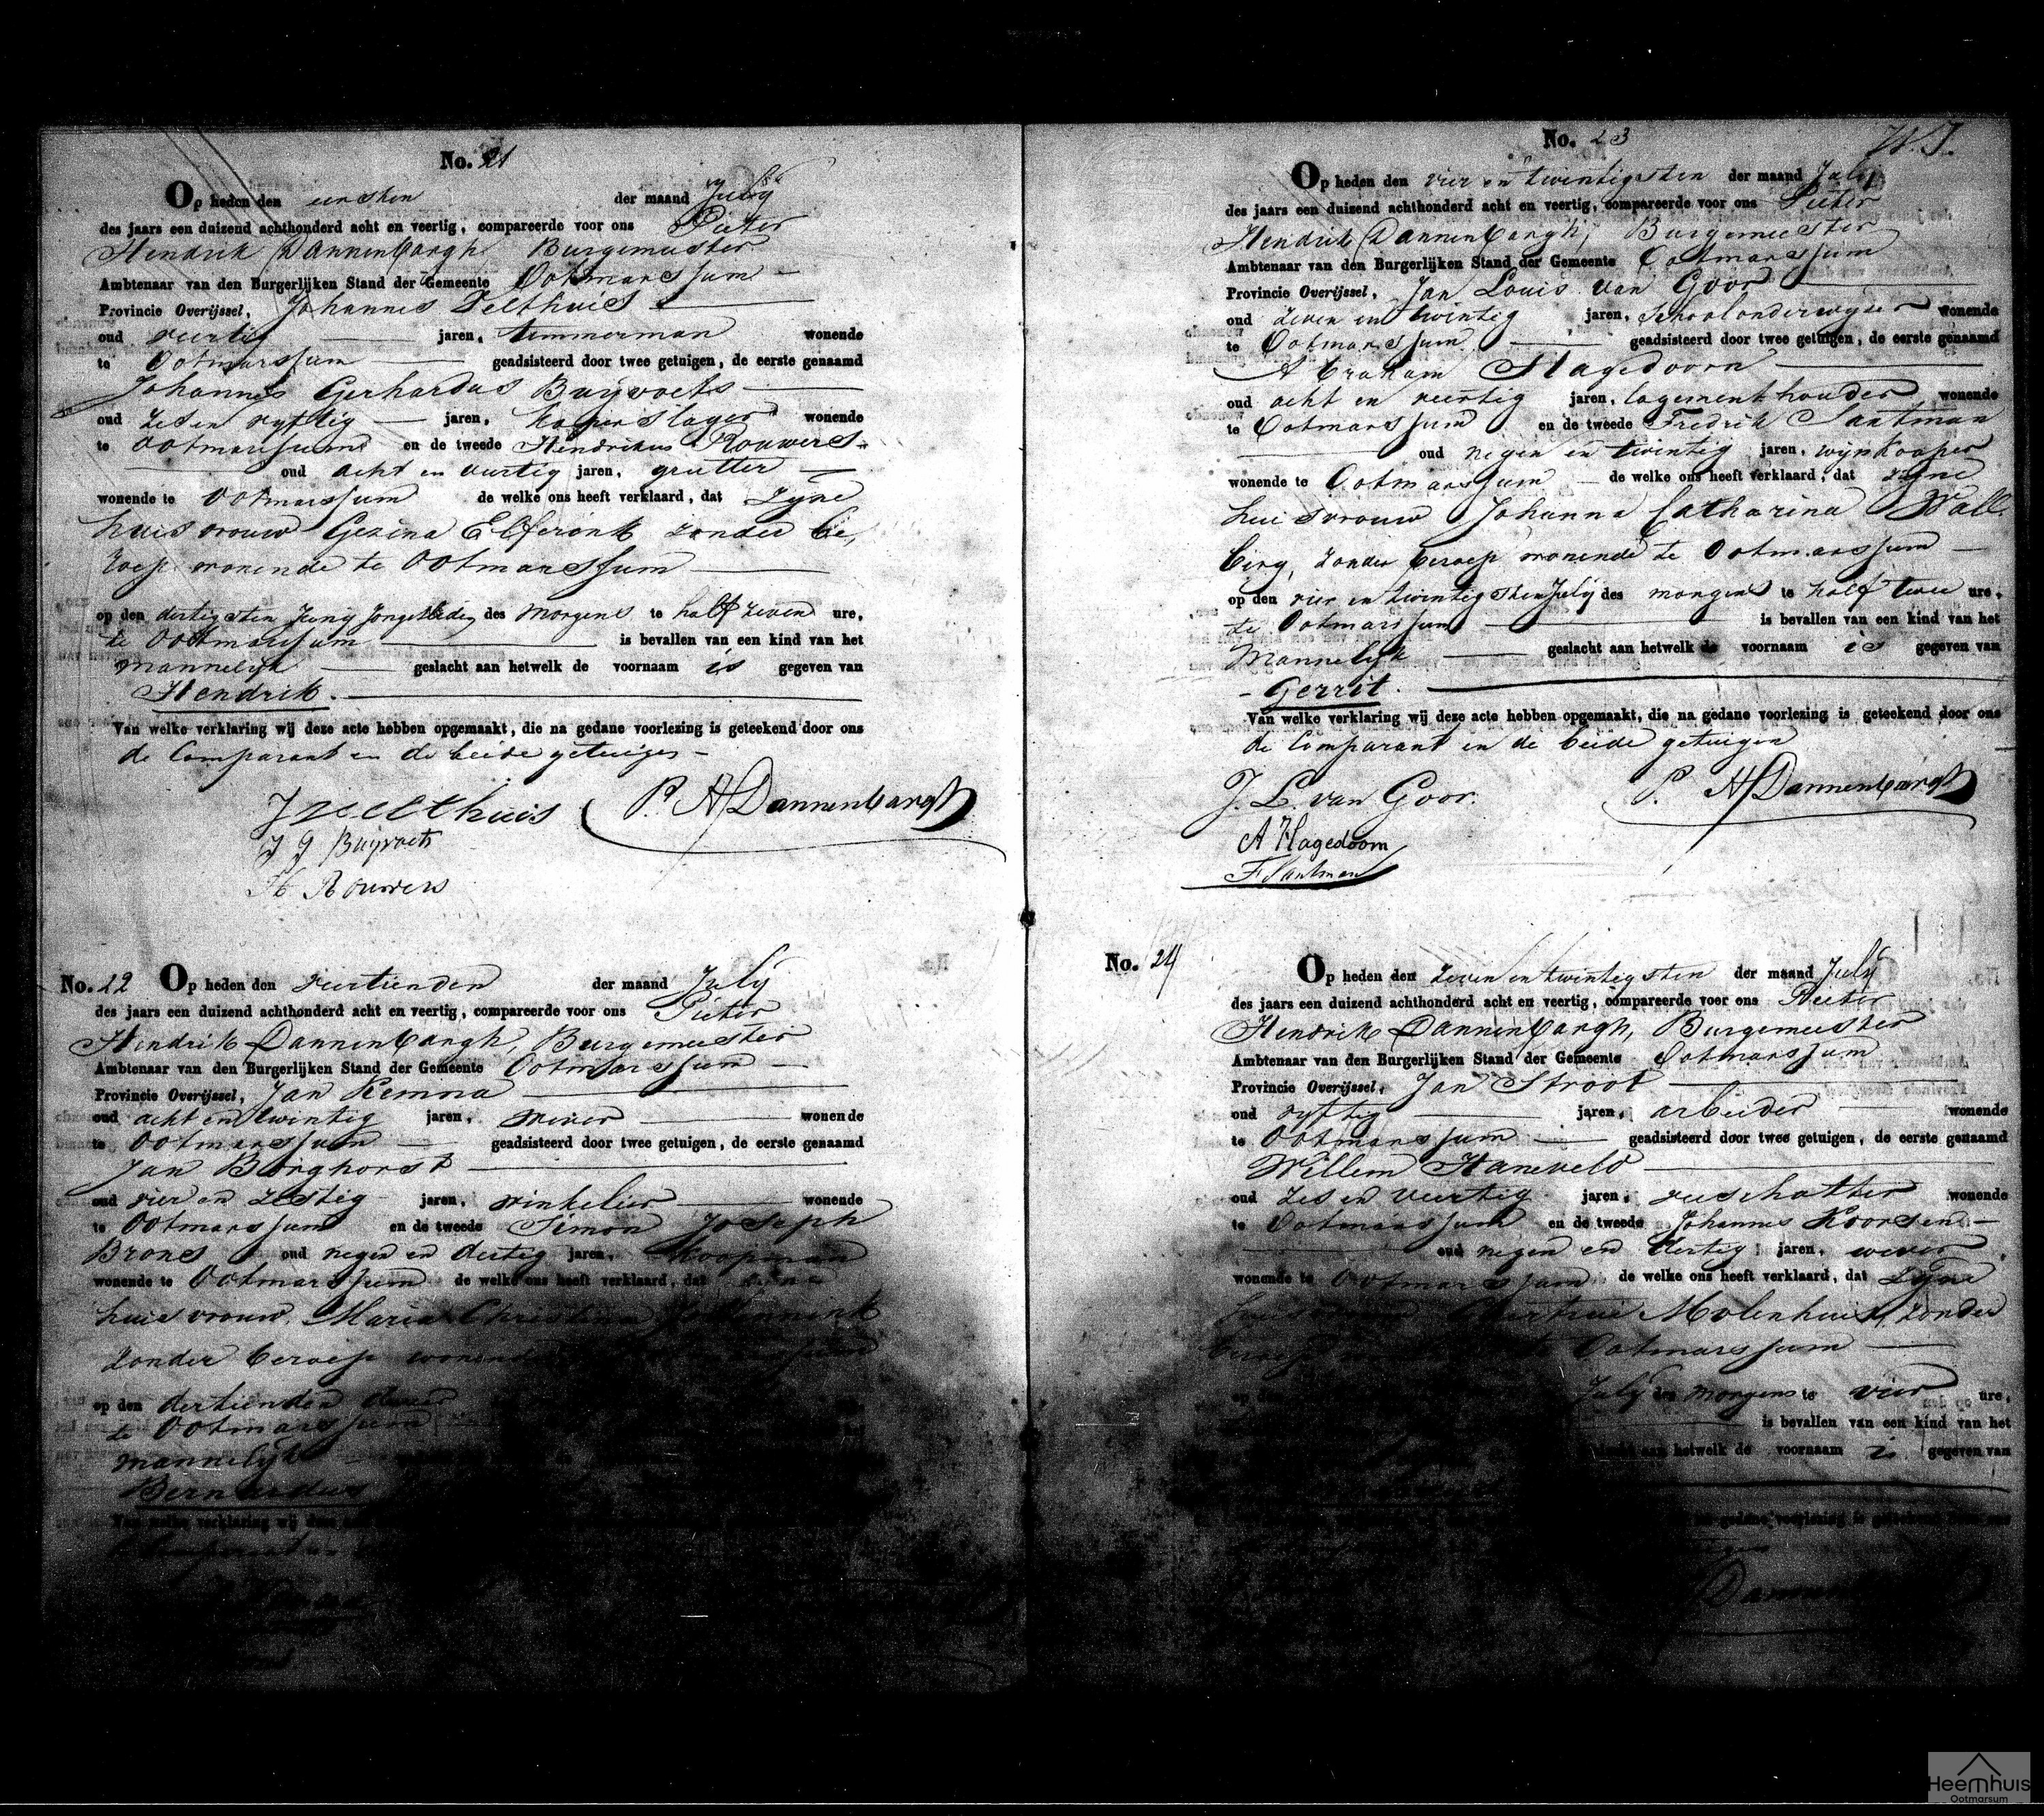 No. 21
Op heden den eersten der maand July
des jaars een duizend achthonderd acht en veertig, compareerde voor ons Pieter
Hendrik Dannenbargh Burgemeester
Ambtenaar van den Burgerlijken Stand der Gemeente Ootmarssum
Provincie Overijssel, Johannes Velthuis
oud veertig jaren, timmerman wonende
te Ootmarssum geadsisteerd door twee getuigen, de eerste genaamd
Johannes Gerhardus Buijvoets
oud zes en vyftig jaren, koperslager wonende
te Ootmarssum en de tweede Hendrikus Rouwers
oud acht en veertig jaren, grutter
wonende te Ootmarssum de welke ons heeft verklaard, dat zyne
huisvrouw Gezina Elferink zonder be,
roep wonende te Ootmarssum
op den dertigsten Juny jongstleden des morgens te half zeven ure,
te Ootmarssum is bevallen van een kind van het
mannelyk geslacht aan hetwelk de voornaam is gegeven van
Hendrik.
Van welke verklaring wij deze acte hebben opgemaakt, die na gedane voorlezing is geteekend door ons
de Comparant en de beide getuigen
J Velthuis P. H Dannenbargh
J G Buijvoets
H Rouwers
No. 22 Op heden den veertienden der maand July
des jaars een duizend achthonderd acht en veertig, compareerde voor ons Pieter
Hendrik Dannenbargh, Burgemeester
Ambtenaar van den Burgerlijken Stand der Gemeente Ootmarssum
Provincie Overijssel, Jan Kemna
oud acht en twintig jaren, wever wonende
te Ootmarssum geadsisteerd door twee getuigen, de eerste genaamd
Jan Borghorst
oud vier en zestig jaren, winkelier wonende
te Ootmarssum en de tweede Simon Joseph
Brones oud negen en dertig jaren, koopman
wonende te Ootmarssum de welke ons heeft verklaard, dat zyne
huisvrouw Maria Christina
zonder beroep wonende
op den dertienden dezer
te Ootmarssum
mannelyk
Bernardus
Van welke verklaring wij deze
No. 23 W. J.
Op heden den vier en twintigsten der maand July
des jaars een duizend achthonderd acht en veertig, compareerde voor ons Pieter
Hendrik Dannenbargh, Burgemeester
Ambtenaar van den Burgerlijken Stand der Gemeente Ootmarssum
Provincie Overijssel, Jan Louis van Goor
oud zeven en twintig jaren, schoolonderwyzer wonende
te Ootmarssum geadsisteerd door twee getuigen, de eerste genaamd
Abraham Hagedoorn
oud acht en veertig jaren, logementhouder wonende
te Ootmarssum en de tweede Fredrik Santman
oud negen en twintig jaren, wynkooper
wonende te Ootmarssum de welke ons heeft verklaard, dat zyne
huisvrouw Johanna Catharina Wall
berg, zonder beroep wonende te Ootmarssum
op den vier en twintigsten July des morgens te half twee ure,
te Ootmarssum is bevallen van een kind van het
Mannelyk geslacht aan hetwelk de voornaam is gegeven van
Gerrit.
Van welke verklaring wij deze acte hebben opgemaakt, die na gedane voorlezing is geteekend door ons
de Comparant en de beide getuigen
J. L. van Goor. P. H Dannenbargh
A Hagedoorn
F Santman
No. 24 Op heden den zeven en twintigsten der maand July
des jaars een duizend achthonderd acht en veertig, compareerde voor ons Pieter
Hendrik Dannenbargh, Burgemeester
Ambtenaar van den Burgerlijken Stand der Gemeente Ootmarssum
Provincie Overijssel, Jan Stroot
oud vyftig jaren, arbeider wonende
te Ootmarssum geadsisteerd door twee getuigen, de eerste genaamd
Willem Haneveld
oud zes en veertig jaren, veeschatter wonende
te Ootmarssum en de tweede Johannes Koorsen
oud negen en dertig jaren, wever
wonende te Ootmarssum de welke ons heeft verklaard, dat zyne
Molenhuis, zonder
beroep te Ootmarssum
op July des morgens te vier ure,
is bevallen van een kind van het
geslacht aan hetwelk de voornaam is gegeven van
na gedane voorlezing is geteekend door ons
Heemhuis
Ootmarsum